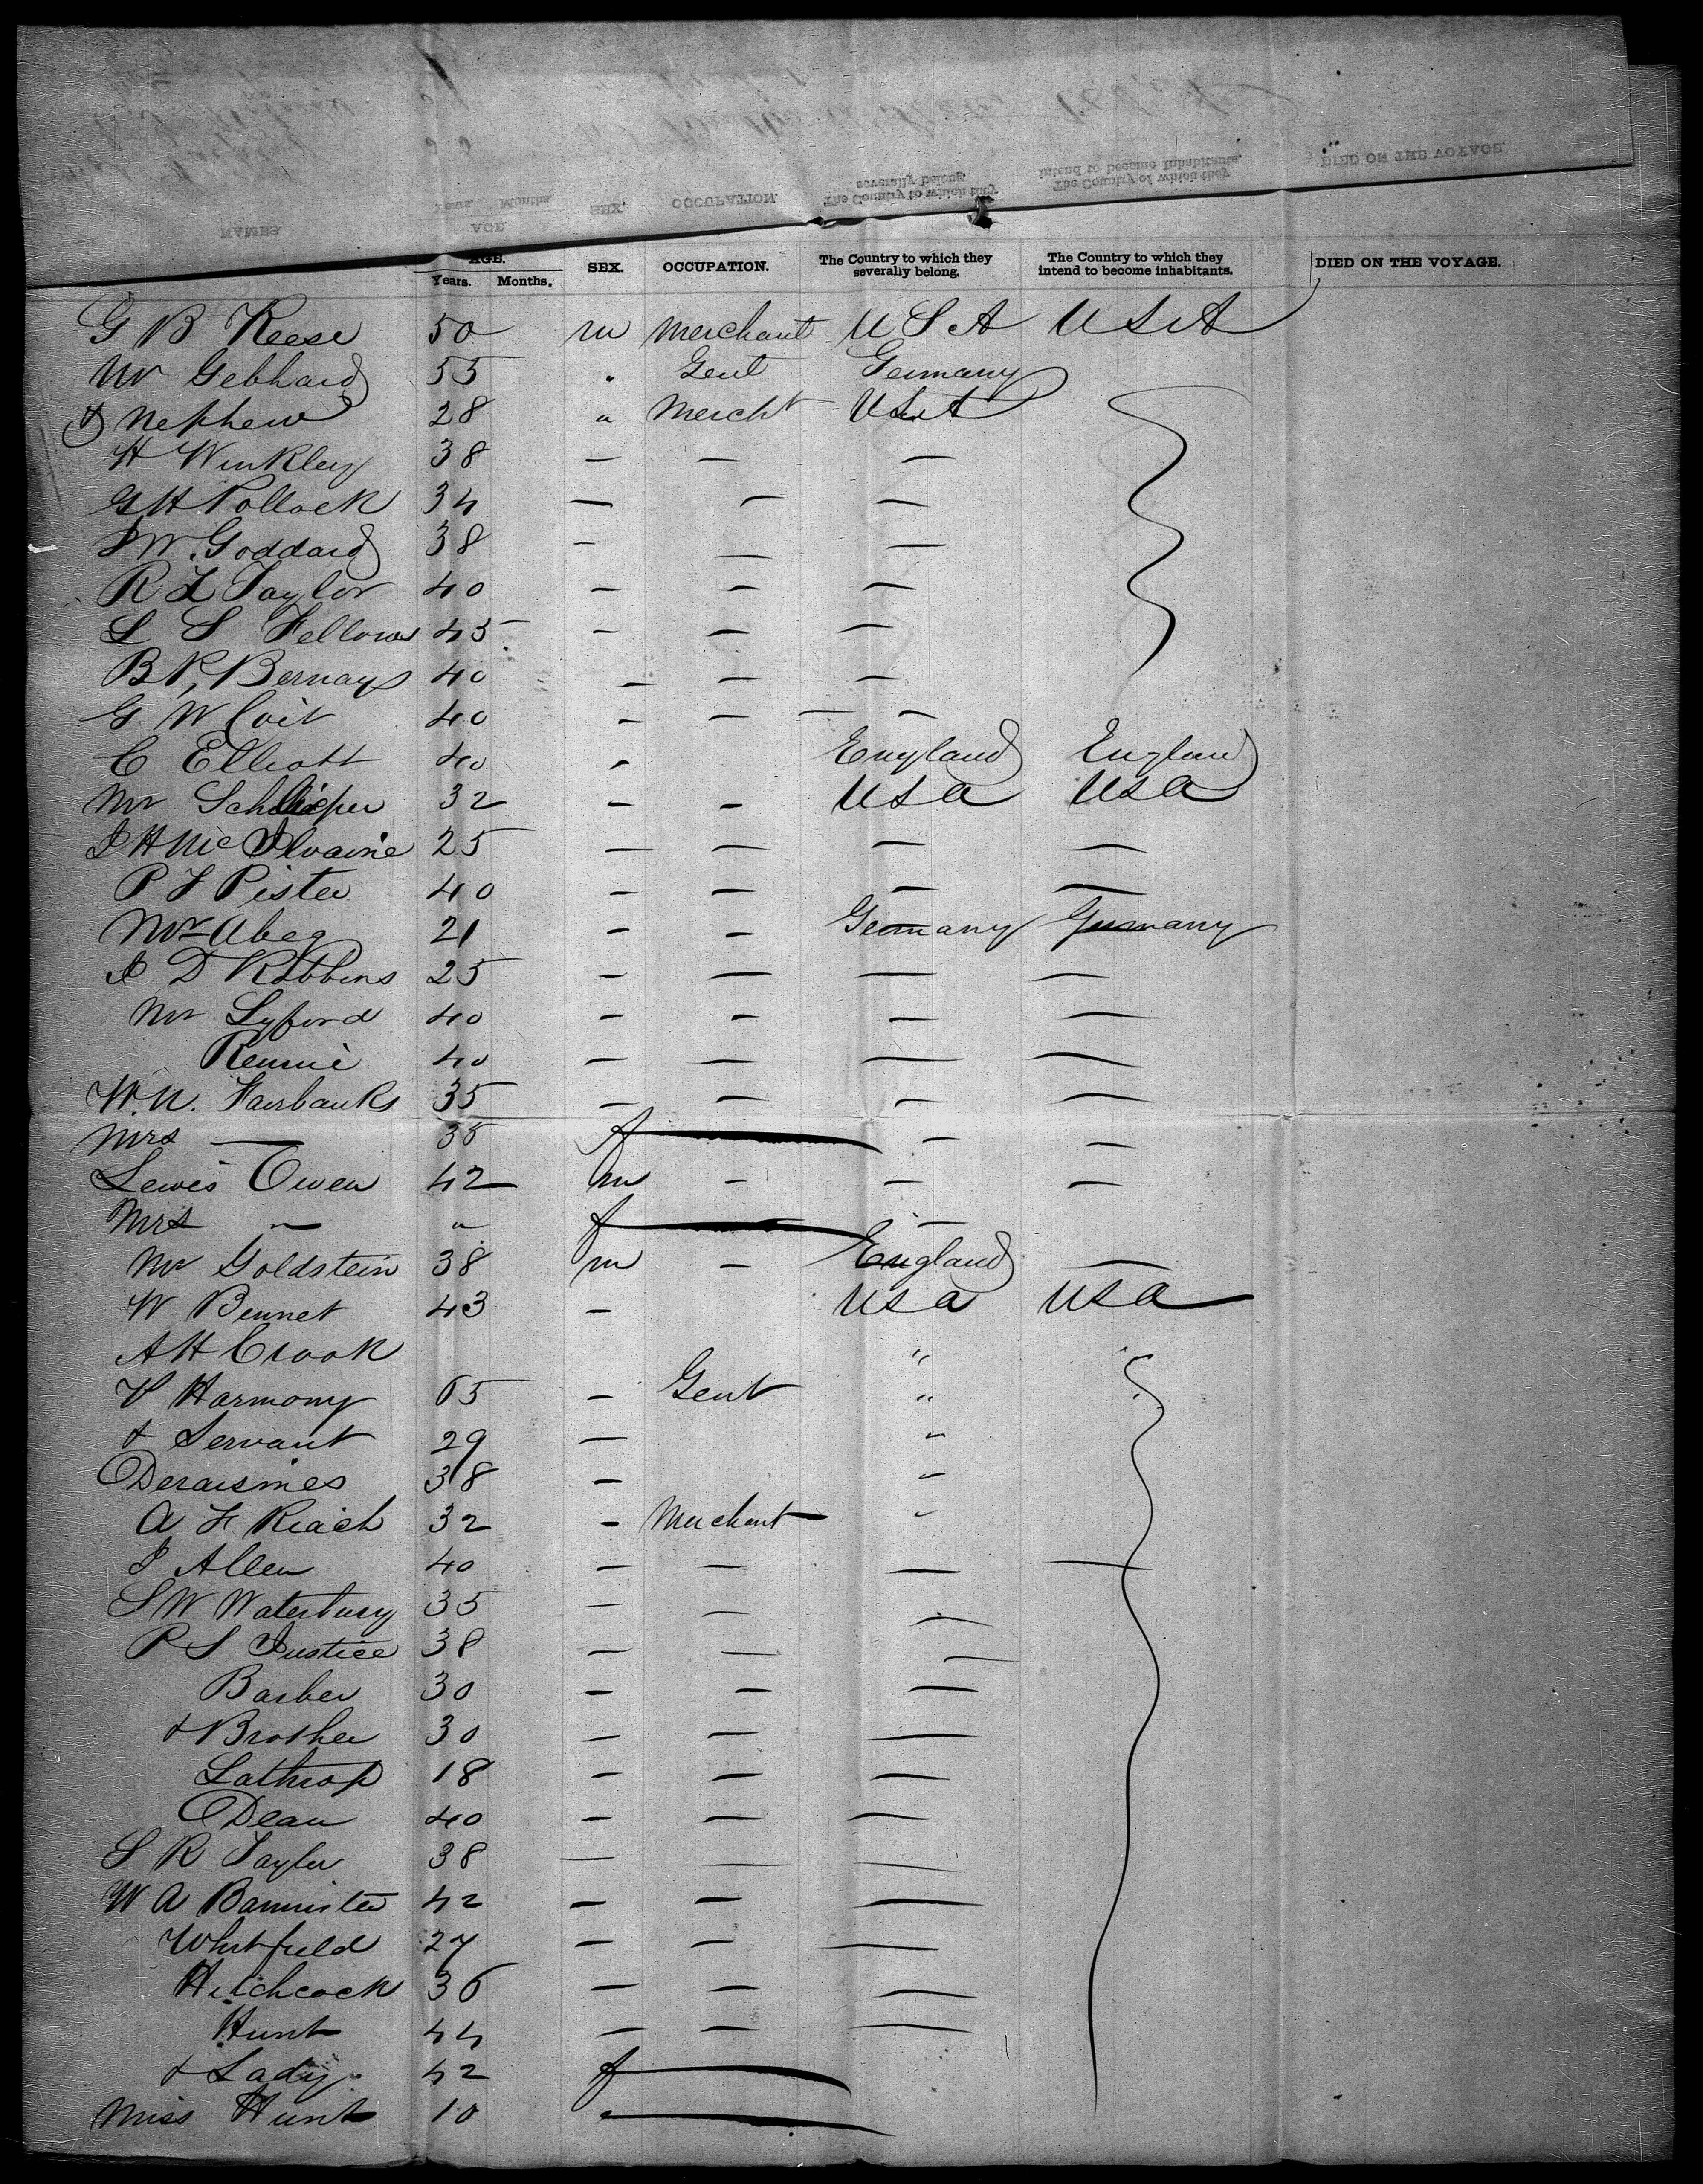 AGE. SEX. OCCUPATION. The Country to which they severally belong. The Country to which they intend to become inhabitants. DIED ON THE VOYAGE.
Years. Months.
G B Reese 50 m Merchant U S A U S A
Mr Gebhard 55 " Gent Germany
& Nephew 28 " Mercht U S A
H Winkley 38 — — —
G H Pollock 34 — — —
J W. Goddard 38 — — —
R L Taylor 40 — — —
L S Fellows 45 — — —
B P, Bernays 40 — — —
G W Coit 40 — — —
C Elliott 40 — England England
Mr Schlieper 32 — — U S A U S A
J H McIlvaine 25 — — — —
P F Pistor 40 — — — —
Mr Abeg 21 — — Germany Germany
J D Robbins 25 — — — —
Mr Lyford 40 — — — —
Rennie 40 — — — —
W. N. Fairbanks 35 — — — —
Mrs — 35 f — —
Lewis Owen 42 m — — —
Mrs — " f —
Mr Goldstein 38 m — England —
W Bennet 43 — U S A U S A
A H Crook "
P Harmony 65 — Gent "
& Servant 29 — "
Deraismes 38 — "
A F Riach 32 — Merchant "
J Allen 40 — — — —
S W Waterbury 35 — — —
P S Justice 38 — — —
Barber 30 — — —
& Brother 30 — — —
Lathrop 18 — — —
Dean 40 — — —
S R Taylor 38 — — —
W A Bannister 42 — — —
Whitfield 27 — — —
Hitchcock 36 — — —
Hunt 44 — — —
& Lady 42 f
Miss Hunt 10 "